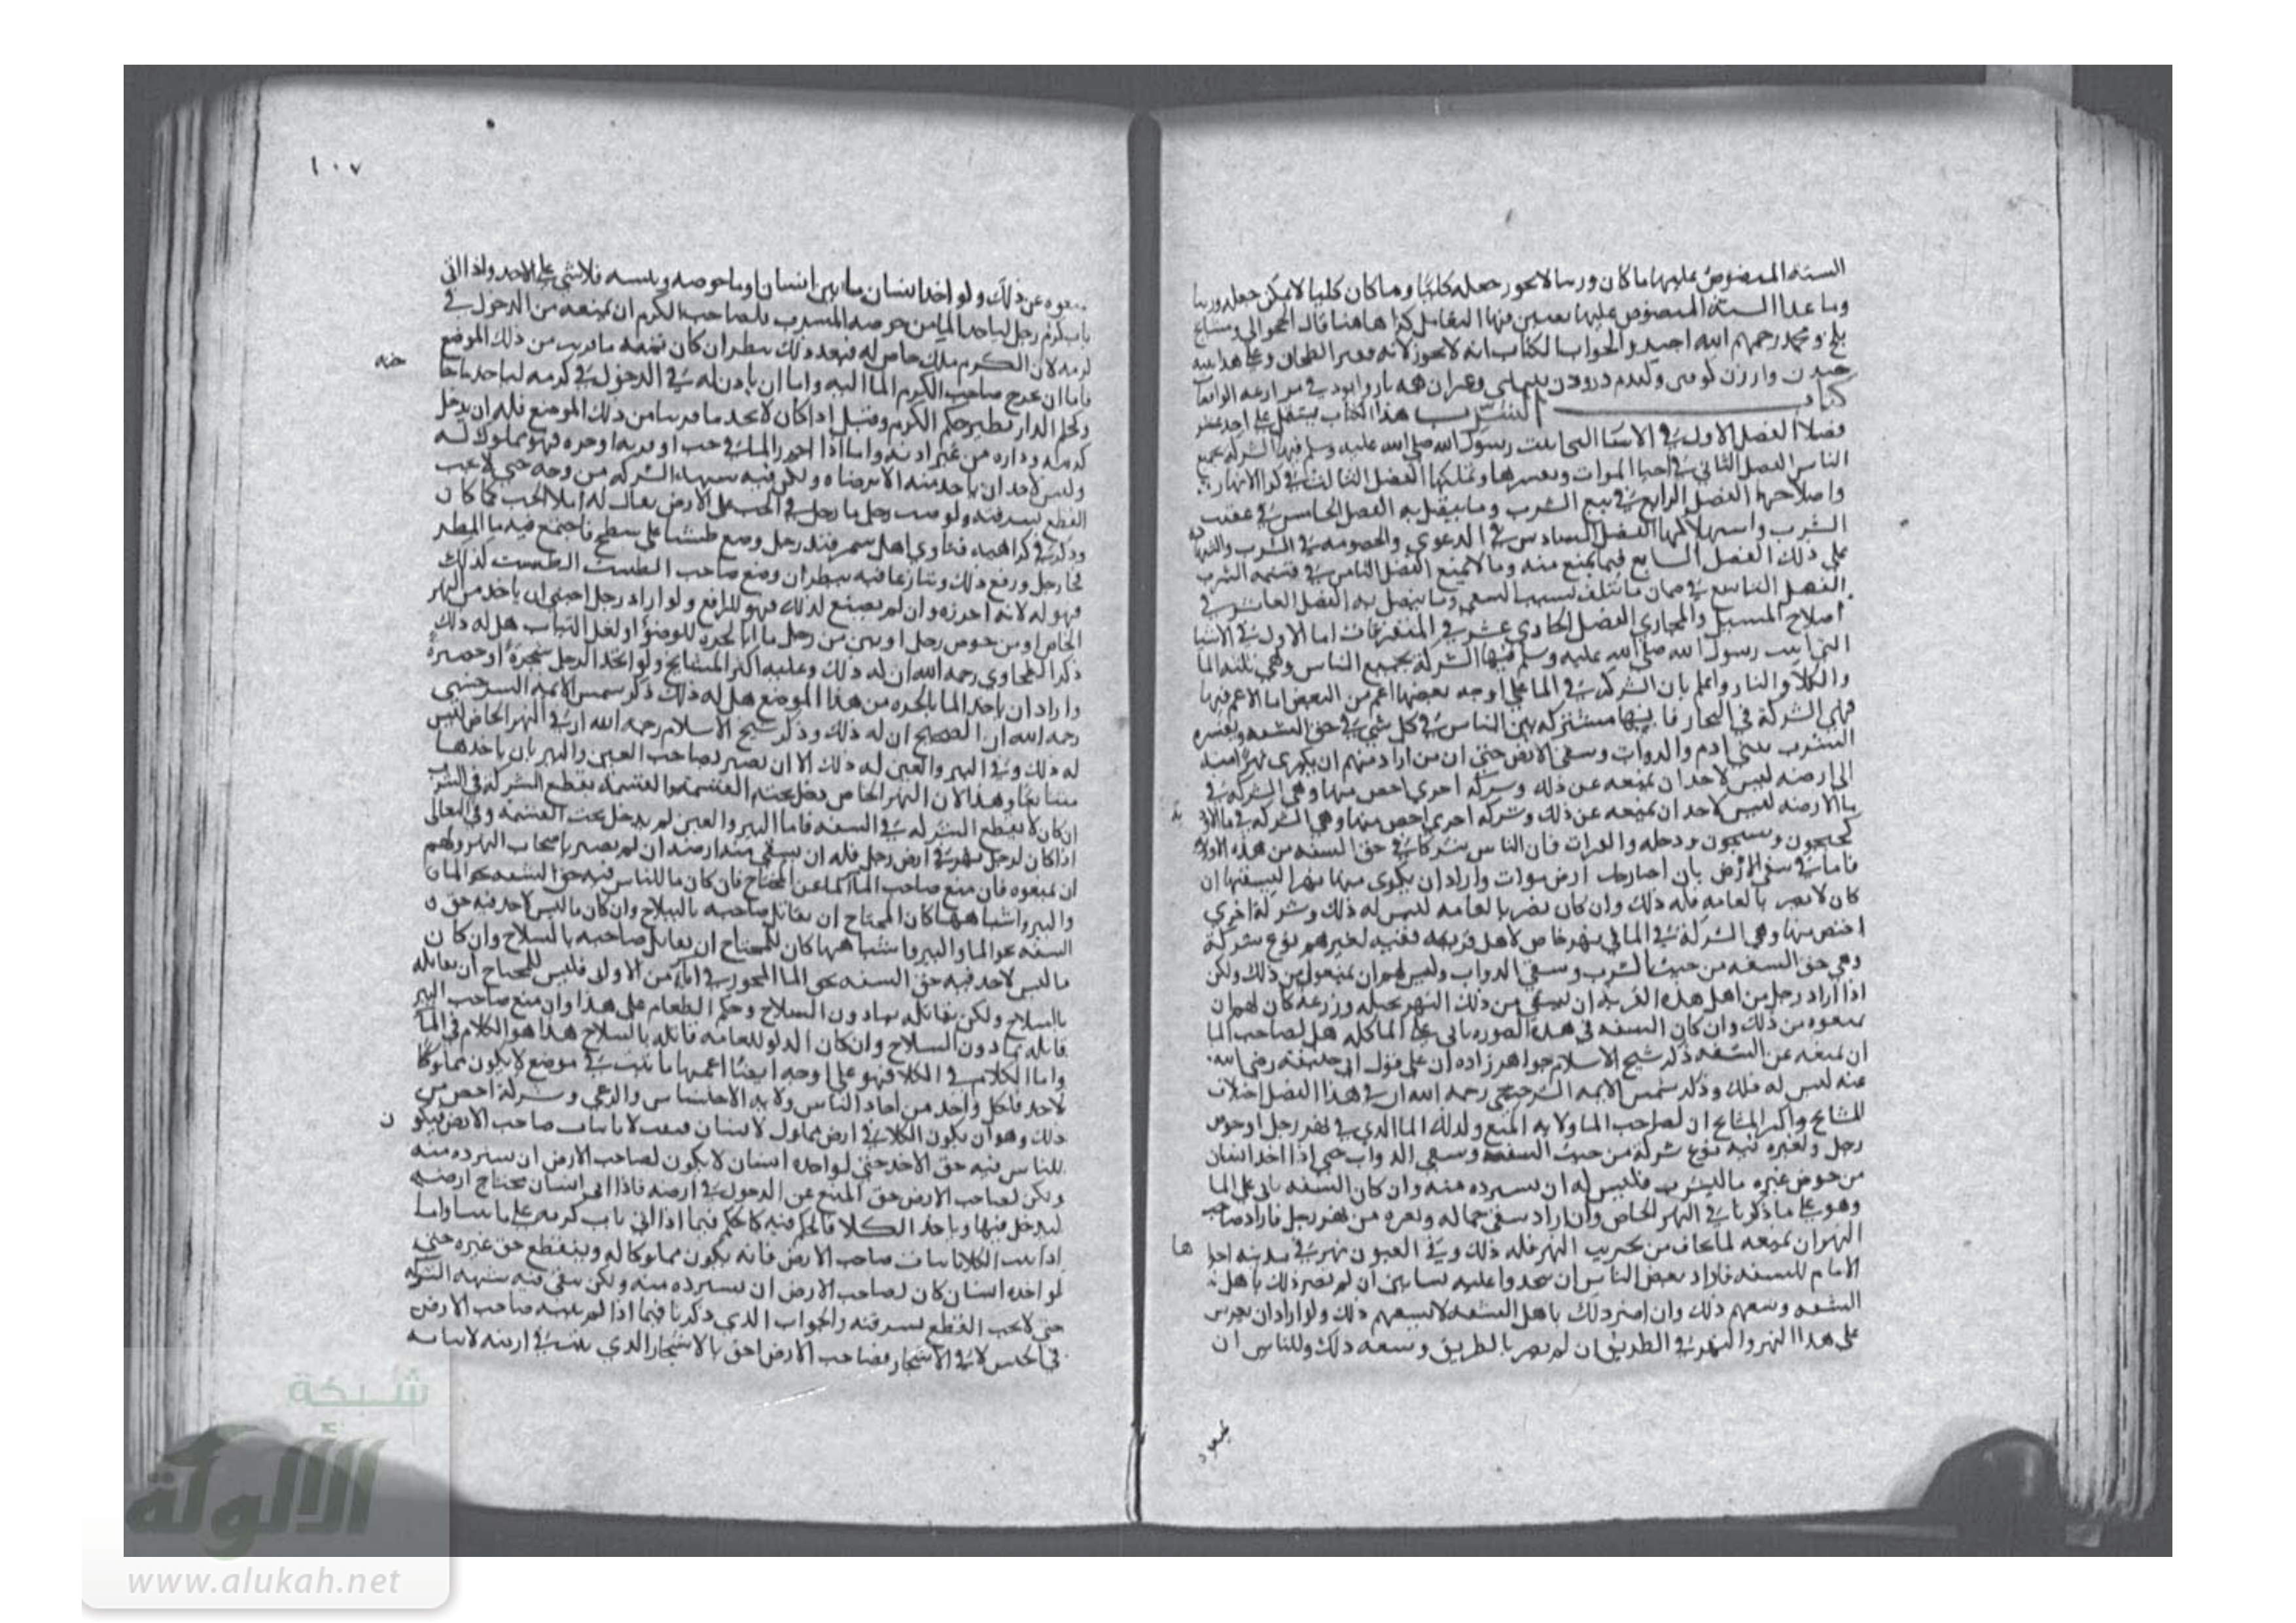 الستة المنصوص عليها ما كان وزنيا لا يجوز جعله كليا وما كان كليا لا يمكن جعله وزنيا
وما عدا الستة المنصوص عليها يعتبر فيها التعامل كذا هاهنا قال الحلوالي ومشايخ
بلخ ومحمد رحمهم الله اجيد والجواب الكتاب انه لا يجوز لانه قفيز الطحان وعلى هذا
كتاب الشرب هذا الكتاب يشتمل على احد عشر
فصلا الفصل الاول في الاشيا التي اثبت رسول الله صلى الله عليه وسلم فيها الشركة بجميع
الناس الفصل الثاني في احيا الموات وتفسيرها وتملكها الفصل الثالث في كرا الانهار
واصلاحها الفصل الرابع في بيع الشرب وما يتصل به الفصل الخامس في غصب
الشرب واستهلاكها الفصل السادس في الدعوي والخصومة في الشرب والشهادة
على ذلك الفصل السابع فيما يمنع منه وما لا يمنع الفصل الثامن في قسمة الشرب
الفصل التاسع في ضمان ما يتلف بسبب السقي وما يتصل به الفصل العاشر في
اصلاح المسيل والمجاري الفصل الحادي عشر في المتفرقات اما الاول في الاشيا
التي اثبت رسول الله صلى الله عليه وسلم فيها الشركة بجميع الناس وهي ثلثه الما
والكلا والنار واعلم بان الشركة في الما على اوجه بعضها اعم من البعض اما الاعم فيها
فهي الشركة في البحار فانها مشتركة بين الناس في كل شي في حق الشفه وتفسيره
الشرب لبني ادم والدواب وسقى الارض حتى ان من اراد منهم ان يكري نهرا منه
الى ارضه ليس لاحد ان يمنعه عن ذلك وشركه اخري اخص منها وهي الشركة في
ما الارضه ليس لاحد ان يمنعه عن ذلك وشركه اخري اخص منها وهي الشركة في ما الاود
كجيجون وسيحون ودجله والفرات فان الناس شركا في حق الشفه من هذه الاوديه
فاما في سقي الارض بان احيا رجل ارض موات واراد ان يكري منها نهرا ليسقيها ان
كان لا يضر بالعامه فله ذلك وان كان يضر بالعامه ليس له ذلك وشركة اخري
اخص منها وهي الشركة في الما في نهر خاص لاهل قرية ففيه لغيرهم نوع شركة
وهي حق الشفه من حيث الشرب وسقي الدواب وليس لهم ان يمنعوا من ذلك ولكن
اذا اراد رجل من اهل هذه القرية ان يسقي من ذلك النهر نخيله وزرعه كان لهم ان
يمنعوه من ذلك وان كان الشفه في هذه الصوره ياتي على الما كله هل لصاحب الما
ان يمنعه عن الشفه ذكر شيخ الاسلام خواهر زاده ان على قول ابي حنيفة رضي الله
عنه ليس له ذلك وذكر شمس الايمة السرخسي رحمه الله ان في هذا الفصل اختلاف
المشايخ واكثر المشايخ ان لصاحب الما ولايه المنع وكذلك الما الذي في نهر رجل او حوض
رجل ولغيره فيه نوع شركة من حيث الشفه وسقي الدواب حتى اذا اخذ انسان
من حوض غيره ما ليشرب فليس له ان يسترده منه وان كان الشفه ياتي على الما
وهو على ما ذكرنا في النهر الخاص وان اراد سقي جماله وبقره من نهر رجل فاراد صاحب
النهر ان يمنعه لما يخاف من تخريب النهر فله ذلك وفي العيون نهر في مدينه اجرا
الامام للشفه فاراد بعض الناس ان يتخذوا عليه بساتين ان لم يضر ذلك باهل
الشفه وسعهم ذلك وان اضر ذلك باهل الشفه لا يسعهم ذلك ولو اراد ان يغرس
على هذا النهر والنهر في الطريق ان لم يضر بالطريق وسعه ذلك وللناس ان
١٠٧
يمنعوه عن ذلك ولو اخذ انسان ما من نهر انسان او ما حوضه فلا شي على الاخذ واذا اتى
باب كرم رجل لياخذ الما من حوضه للشرب فلصاحب الكرم ان يمنعه من الدخول في
كرمه لان الكرم ملك خاص له فبعد ذلك ينظر ان كان نفسه ما قريب من ذلك الموضع
فاما ان يخرج صاحب الكرم الما اليه واما ان ياذن له في الدخول في كرمه لياخذ
وحكم الدار نظير حكم الكرم وقيل اذا كان لا يجد ما قريبا من ذلك الموضع فله ان يدخل
كرمه وداره من غير اذنه واما اذا احرز الما في حب او قربه او جره فهو مملوك له
وليس لاحد ان ياخذ منه الا برضاه ولكن فيه شبهة الشركه من وجه حتى لا يجب
القطع بسرقته ولو صب رجل ما رجل في الحب على الارض يقال له املا الحب كما كان
وذكر في كراهيه فتاوي اهل سمرقند رجل وضع طشتا على سطح فاجتمع فيه ما المطر
فجا رجل ورفع ذلك وتنازعا فيه ينظر ان وضع صاحب الطست الطست لذلك
فهو له لانه احرزه وان لم يضع لذلك فهو للرافع ولو اراد رجل اجنبي ان ياخذ من النهر
الخاص او من حوض رجل او بير من رجل ما بالجره للوضو او لغسل الثياب هل له ذلك
ذكر الطحاوي رحمه الله ان له ذلك وعليه اكثر المشايخ ولو اتخذ الرجل شجرة او خضرة
واراد ان ياخذ الما بالجره من هذا الموضع هل له ذلك ذكر شمس الايمه السرخسي
رحمه الله ان الصحيح ان له ذلك وذكر شيخ الاسلام رحمه الله ان في النهر الخاص ليس
له ذلك وفي البير والعين له ذلك الا ان يضر بصاحب العين والبير بان ياخذها
متتابعا وهذا لان النهر الخاص دخل تحت القسمة والقسمة تقطع الشركة في الشرب
ان كان لا يقطع الشركه في الشفه فاما البير والعين لم يدخل تحت القسمه وفي المعالى
اذا كان لرجل نهر في ارض رجل فله ان يسقي منه ارضه ان لم يضر باصحاب النهر ولهم
ان يمنعوه فان منع صاحب الما الما عن المحتاج فان كان ما للناس فيه حق الشفه نحو الما
والبير واشباهها كان للمحتاج ان يقاتل صاحبه بالسلاح وان كان ما ليس لاحد فيه حق
الشفه نحو الما والبير واشباهها كان للمحتاج ان يقاتل صاحبه بالسلاح وان كان
ما ليس لاحد فيه حق الشفه نحو الما المحرز في اناء من الاواني فليس للمحتاج ان يقاتله
بالسلاح ولكن يقاتله بما دون السلاح وحكم الطعام على هذا وان منع صاحب البير
قاتله بما دون السلاح وان كان الدلو للعامه قاتله بالسلاح هذا هو الكلام في الما
واما الكلام في الكلا فهو على اوجه ايضا اعمها ما نبت في موضع لا يكون مملوكا
لاحد فلكل واحد من احاد الناس ولايه الاحتشاش والرعي وشركة اخص من
ذلك وهو ان يكون الكلا في ارض مملوك لانسان نبت لا بانبات صاحب الارض فيكون
للناس فيه حق الاخذ حتى لو اخذه انسان لا يكون لصاحب الارض ان يسترده منه
ولكن لصاحب الارض حق المنع عن الدخول في ارضه فاذا اتى انسان محتاج ارضه
ليدخل فيها وياخذ الكلا فالحكم فيه كالحكم فيما اذا اتى باب كرمه على ما بينا واما
اذا نبت الكلا بانبات صاحب الارض فانه يكون مملوكا له وينقطع حق غيره حتى
لو اخذه انسان كان لصاحب الارض ان يسترده منه ولكن بقي فيه شبهه الشركة
حتى لا يجب القطع بسرقته والجواب الذي ذكرنا فيما اذا لم ينبته صاحب الارض
في الحشيش لا في الاشجار فصاحب الارض احق بالاشجار الذي ينبت في ارضه لا بانباته
شبكة
الألوكة
www.alukah.net